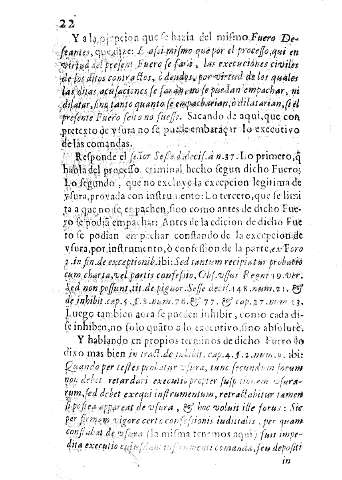 22
Y a la objecpcion que se hazia del mismo Fuero De-
seantes, que dize: E assi mismo que por el processo, qui en
virtud del present Fuero se fara, las execuciones civiles
de los ditos contractos, ò deudos, por virtud de los quales
las ditas acusaciones se faràn, no se puedan empachar, ni
dilatar, sino tanto quanto se empacharian, ò dilatarian, si el
present Fuero feito no fuesse. Sacando de aqui, que con
pretexto de vsura no se puede embaraçar lo executivo
de las comandas.
Responde el señor Sesse d. decis. à n. 37. Lo primero, q̃
habla del processo criminal hecho segun dicho Fuero;
Lo segundo, que no excluye la excepcion legitima de
vsura, provada con instrumento: Lo tercero, que se limi
ta a que no se empachen, sino como antes de dicho Fue-
ro se podia empachar: Antes de la edicion de dicho Fue
ro se podian empachar constando de la excepcion de
vsura, por instrumento, ò confession de la parte, ex Foro
2. in fin. de exceptionib. ibi: Sed tantum recipiatur probatio
cum charta, vel partis confessio. Obs. Vsus Regni 19. ver.
Sed non possunt, tit. de pignor. Sesse decis. 148. num. 21. &
de inhibit. cap. 4. §. 8. num. 76. & 77. & cap. 27. num 23.
Luego tambien aora se pueden inhibir, como cada dia
se inhiben, no solo quãto a lo executivo, sino absolutè.
Y hablando en propios terminos de dicho Fuero lo
dixo mas bien in tract. de inhibit. cap. 4. §. 2. num. ibi:
Quando per testes probatur vsura, tunc secundum forum
non debet retardari executio propter suspitionem vsura-
rum, sed debet exequi instrumentum, retractabitur tamen
si postea appareat de vsura, & hoc voluit iste forus: Sic
per firmam vigore certo confessionis iudicialis, per quam
constabat de vsura (la misma tenemos aqui) fuit impe-
dita executio comanda, seu depositi
in